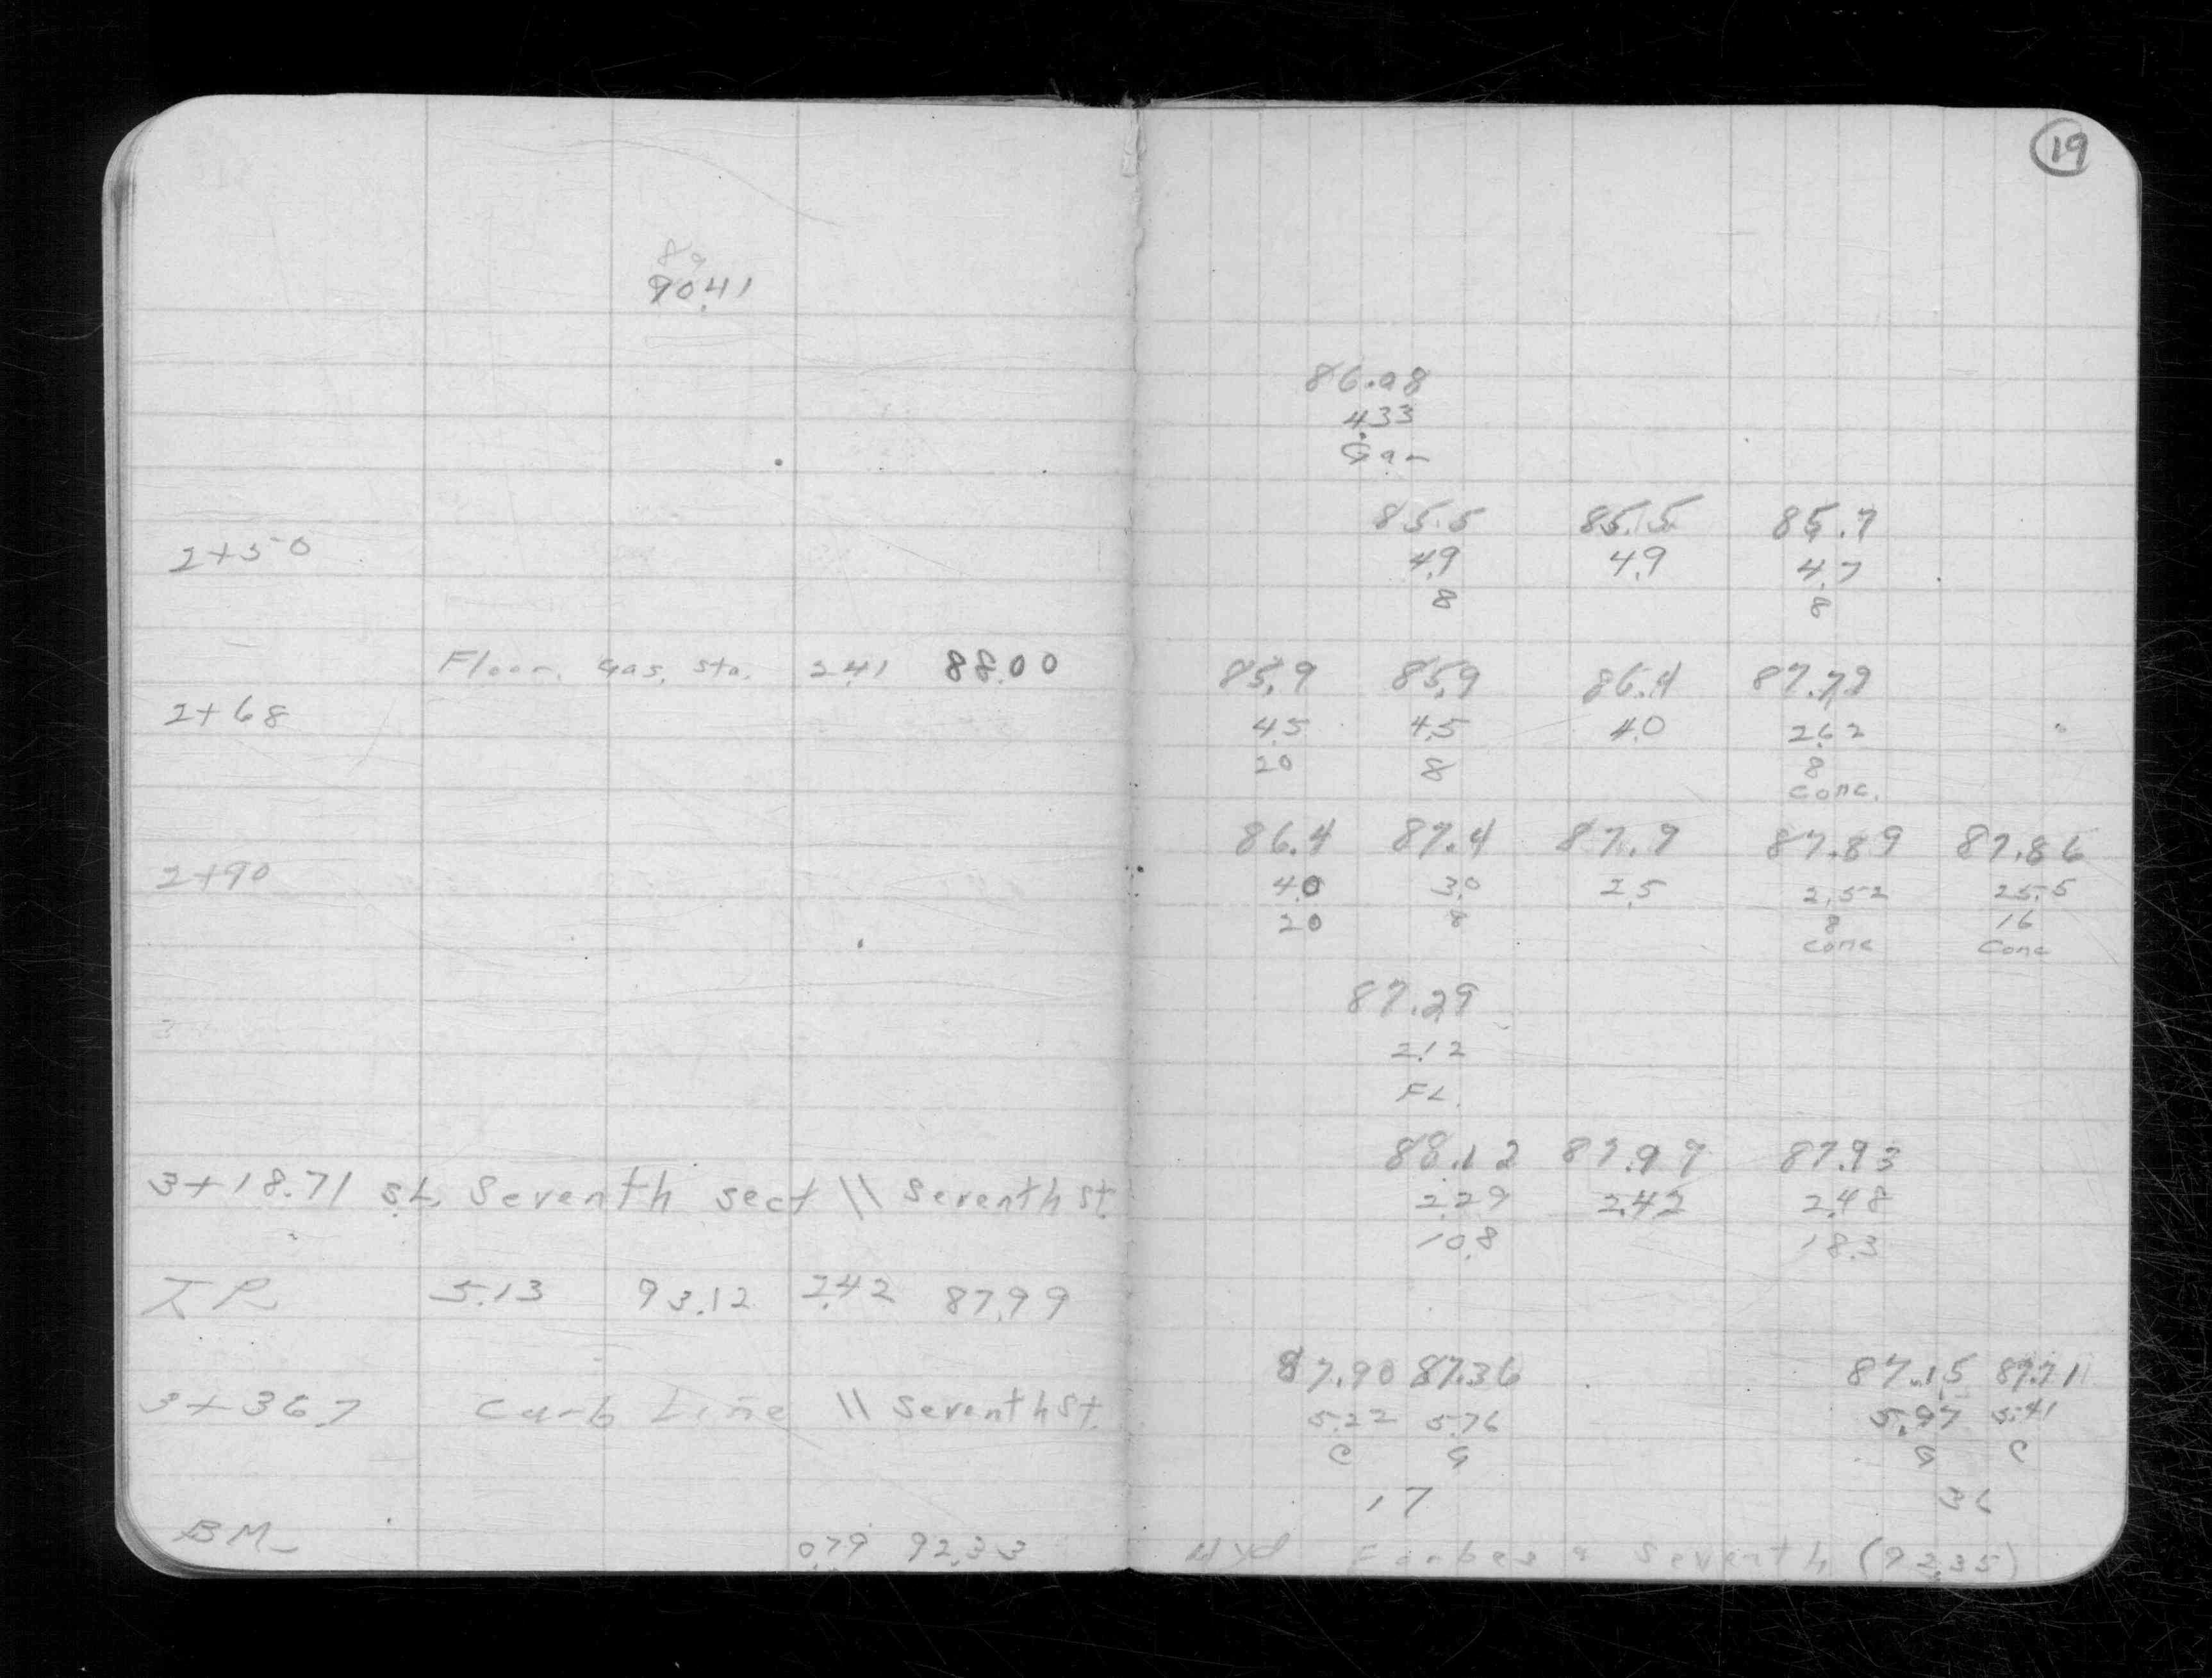 19
89
90.41
86.08
4.33
Gar
85.5 85.5 85.7
2+50 4.9 4.9 4.7
8 8
Floor. Gas. Sta. 2.41 88.00 85.9 85.9 86.4 87.79
2+68 4.5 4.5 4.0 2.62
20 8 8
conc.
86.4 87.4 87.9 87.89 87.86
2+90 4.0 3.0 2.5 2.52 2.55
20 8 8 16
conc Conc
87.29
2.12
FL.
88.12 87.99 87.93
3+18.71 S.L. Seventh sect \\ Seventh St. 2.29 2.42 2.48
10.8 18.3
T.P. 5.13 93.12 2.42 87.99
87.90 87.36 87.15 87.71
3+36.7 Curb Line \\ Seventh St. 5.22 5.76 5.97 5.41
C G G C
17 36
BM 0.79 92.33 Hyd Forbes & Seventh (92.35)